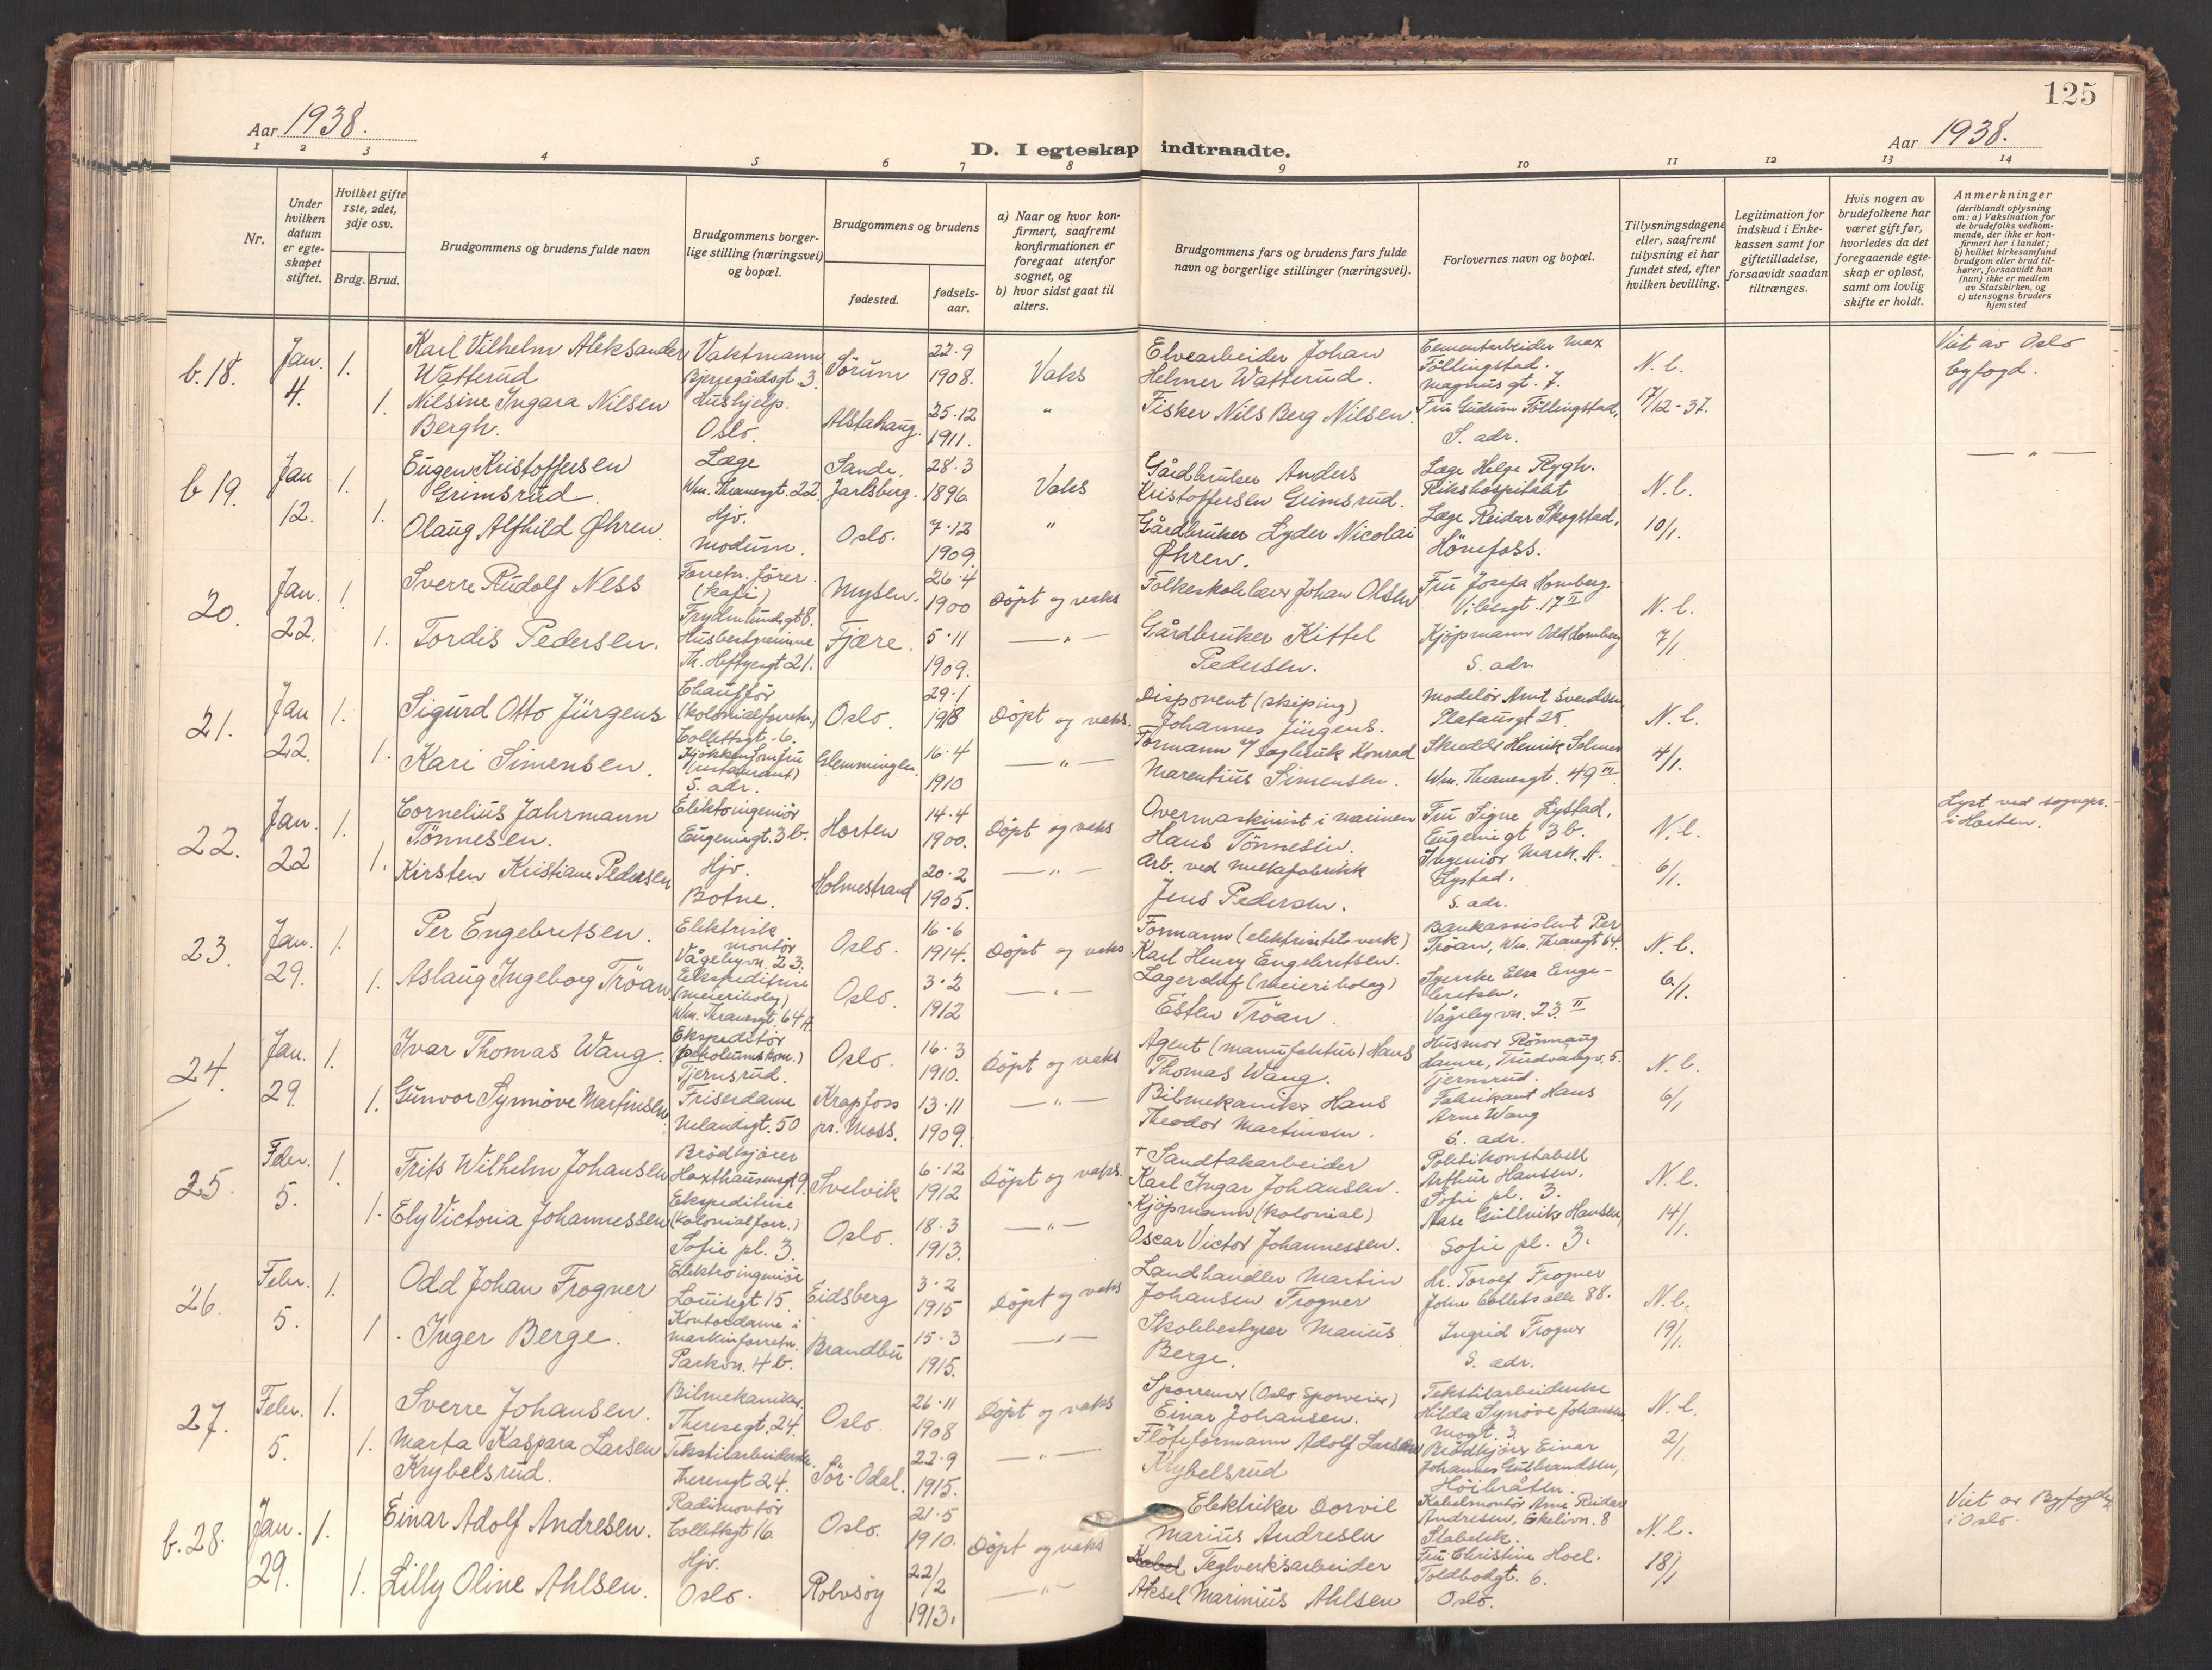 125
Aar 1938.
Aar 1938.
D. I egteskap indtraadte.
1 2 3 4 5 6 7 8 9 10 11 12 13 14
Nr.
Under hvilken datum er egte-skapet stiftet.
Hvilket gifte 1ste, 2det, 3dje osv.
Brdg. Brud.
Brudgommens og brudens fulde navn
Brudgommens borger-lige stilling (næringsvei) og bopæl.
Brudgommens og brudens
fødested.
fødsels-aar.
a) Naar og hvor kon-firmert, saafremt konfirmationen er foregaat utenfor sognet, og
b) hvor sidst gaat til alters.
Brudgommens fars og brudens fars fulde navn og borgerlige stillinger (næringsvei).
Forlovernes navn og bopæl.
Tillysningsdagene eller, saafremt tillysning ei har fundet sted, efter hvilken bevilling.
Legitimation for indskud i Enke-kassen samt for giftetilladelse, forsaavidt saadan tiltrænges.
Hvis nogen av brudefolkene har været gift før, hvorledes da det foregaaende egte-skap er opløst, samt om lovlig skifte er holdt.
Anmerkninger
(deriblandt oplysning om: a) Vaksination for de brudefolks vedkom-mende, der ikke er kon-firmert her i landet; b) hvilket kirkesamfund brudgom eller brud til-hører, forsaavidt han (hun) ikke er medlem av Statskirken, og c) utensogns bruders hjemsted
b. 18. Jan. 4. 1. Karl Vilhelm Aleksander Watterud
Vaktmann Bjerregårdsgt. 3.
Sørum 22.9 1908. Vaks
Elvearbeider Johan Helmer Watterud.
Cementarbeider Max Föllingstad. Magnus gt. 7.
N. l. 17/12-37.
Viet av Oslo byfogd.
1. Nilsine Ingara Nilsen Bergh.
Hushjelp. Oslo.
Alstahaug. 25.12 1911. "
Fisker Nils Berg Nilsen.
Fru Gudrun Föllingstad, S. adr.
b 19. Jan 12. 1. Eugen Kristoffersen Grimsrud.
Læge Wm. Thranesgt. 22
Sande. Jarlsberg. 28.3 1896 Vaks
Gårdbruker Anders Kristoffersen Grimsrud.
Læge Helge Rygh. Rikshospitalet
N. l. 10/1.
— " —
1. Olaug Alfhild Øhren.
Hjv. Modum.
Oslo. 7.12 1909. "
Gårdbruker Lyder Nicolai Øhren.
Læge Reidar Skogstad, Hönefoss.
20. Jan. 22. 1. Sverre Rudolf Ness
Forretn. fører. (kafe) Frydenlundsgt 8.
Mysen. 26.4 1900 Döpt og vaks
Folkeskolelærer Johan Olsen
Fru Josefa Homberg. Vibesgt. 17 II
N. l. 7/1
1. Tordis Pedersen.
Husbestyrerinne Th. Heftyesgt 21.
Fjære. 5.11 1909. — " —
Gårdbruker Kittel Pedersen.
Kjöpmann Odd Homberg S. adr.
21. Jan 22. 1. Sigurd Otto Jürgens
Chauffør (kolonialforretn.) Collettsgt. 6.
Oslo. 29.1 1918 Döpt og vaks.
Disponent (skiping) Johannes Jürgens.
Modelør Arnt Svendsen Platousgt 25.
N. l. 4/1.
1. Kari Simensen.
Kjökkenjomfru (restaurant) S. adr.
Glemmingen. 16.4 1910 — " —
Formann v/ sagbruk Konrad Marentius Simensen.
Skredder Henrik Solmer Wm. Thranesgt. 49 III
22. Jan. 22 1. Cornelius Jahrmann Tönnesen.
Elektroingeniör Eugeniagt. 3 b.
Horten 14.4 1900. Döpt og vaks
Overmaskinist i marinen Hans Tönnesen.
Fru Signe Lystad, Eugeniegt 3 b.
N. l. 6/1.
Lyst ved sogner. i Horten.
1. Kirsten Kristiane Pedersen
Hjv. Botne.
Holmestrand 20.2 1905. — " —
Arb. ved melkefabrikk Jens Pedersen.
Ingeniör Mark. A. Lystad. S. adr.
23. Jan. 29. 1. Per Engebretsen.
Elektrisk montör Vågebyvn. 23.
Oslo. 16.6 1914. Döpt og vaks
Formann (elektrisitetsverk) Karl Henry Engebretsen.
Bankassistent Per Tröan, Wm. Thranesgt 64.
N. l. 6/1.
1. Aslaug Ingeborg Tröan.
Ekspeditrise (meieribolag) Wm. Thranesgt. 64 A.
Oslo. 3.2 1912 — " —
Lagersjef (meieribolag) Esten Tröan.
Syerske Elsa Enge-bretsen. Vågebyvn. 23. II
24. Jan. 29. 1. Ivar Thomas Wang.
Ekspeditör (petroleumskom.) Tjernsrud.
Oslo. 16.3 1910. Döpt og vaks
Agent (manufaktur) Hans Thomas Wang.
Husmor Rönnaug Hamre, Trudvangv. 5. Tjernsrud.
N. l. 6/1
1. Gunvor Synnöve Martinsen.
Friserdame Uelandsgt. 50
Krapfoss pr. Moss. 13.11 1909. — " —
Bilmekaniker Hans Theodor Martinsen.
Fabrikant Hans Arne Wang S. adr.
25. Febr. 5. 1. Frits Wilhelm Johansen
Brödkjører Haxthausensgt 9.
Svelvik 6.12 1912 Döpt og vaks.
Sandtakarbeider Karl Ingar Johansen.
Politikonstabell Arthur Hansen. Sofie pl. 3.
N. l. 14/1.
1. Ely Victoria Johannessen
Ekspeditrise (kolonialforr.) Sofie pl. 3.
Oslo. 18.3 1913. — " —
Kjöpmann (kolonial) Oscar Victor Johannessen.
Aase Gullvika Hansen, Sofie pl. 3.
26. Febr. 5. 1. Odd Johan Frogner
Elektroingeniör Louisegt 15.
Eidsberg 3.2 1915 Döpt og vaks
Landhandler Martin Johansen Frogner
Hr. Toralf Frogner John Colletts alle 88.
N. l. 19/1.
1. Inger Berge.
Kontordame i maskinforretn. Parkvn. 4 b.
Brandbu 15.3 1915. — " —
Skolebestyrer Marius Berge.
Ingrid Frogner S. adr.
27. Febr. 5. 1. Sverre Johansen.
Bilmekaniker. Theresegt. 24.
Oslo. 26.11 1908 Döpt og vaks
Sporrenser (Oslo Sporveier) Einar Johansen.
Tekstilarbeiderske Hilda Synöve Johansen Mogt. 3.
N. l. 2/1.
1. Marta Kaspara Larsen Krybelsrud.
Tekstilarbeiderske. Theresgt 24.
Sör-Odal. 22.9 1915. — " —
Flöteformann Adolf Larsen Krybelsrud
Brödkjörer Einar Johannes Gulbrandsen, Höibråten.
b. 28. Jan. 29. 1. Einar Adolf Andresen.
Radiomontör Collettsgt 16
Oslo. 21.5 1910. Döpt og vaks
Elektriker Dorvil Marius Andresen
Kabelmontör Arne Reidar Andresen, Ekelivn. 8 Stabekk.
N. l. 18/1
Viet av Byfogden i Oslo.
1. Lilly Oline Ahlsen.
Hjv. Oslo.
Rolvsöy 22/2 1913. — " —
Teglverksarbeider Aksel Marinius Ahlsen
Fru Christine Hoel. Toldbodgt. 6. Oslo.